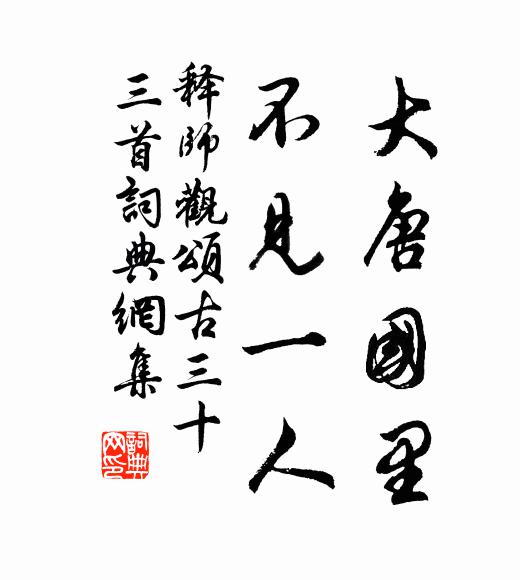 大唐國里
不見一人
释師觀頌古三十
三首詞典網集
詞典
网印